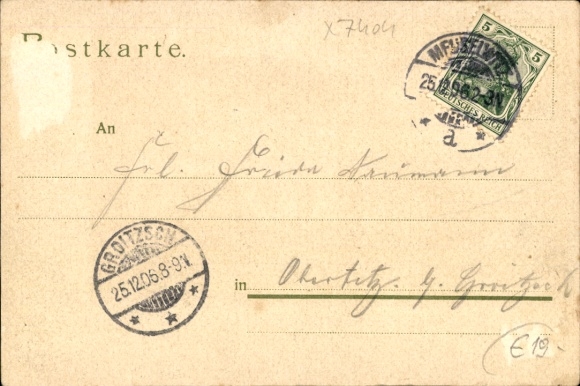 X7404
Postkarte.
MEUSELWITZ
25.12.06.2-3N.
a
5 5
DEUTSCHES REICH
An
Frl. Frieda Naumann
GROITZSCH
25.12.06.8-9N.
in Obertitz b. Groitzsch
E19.-